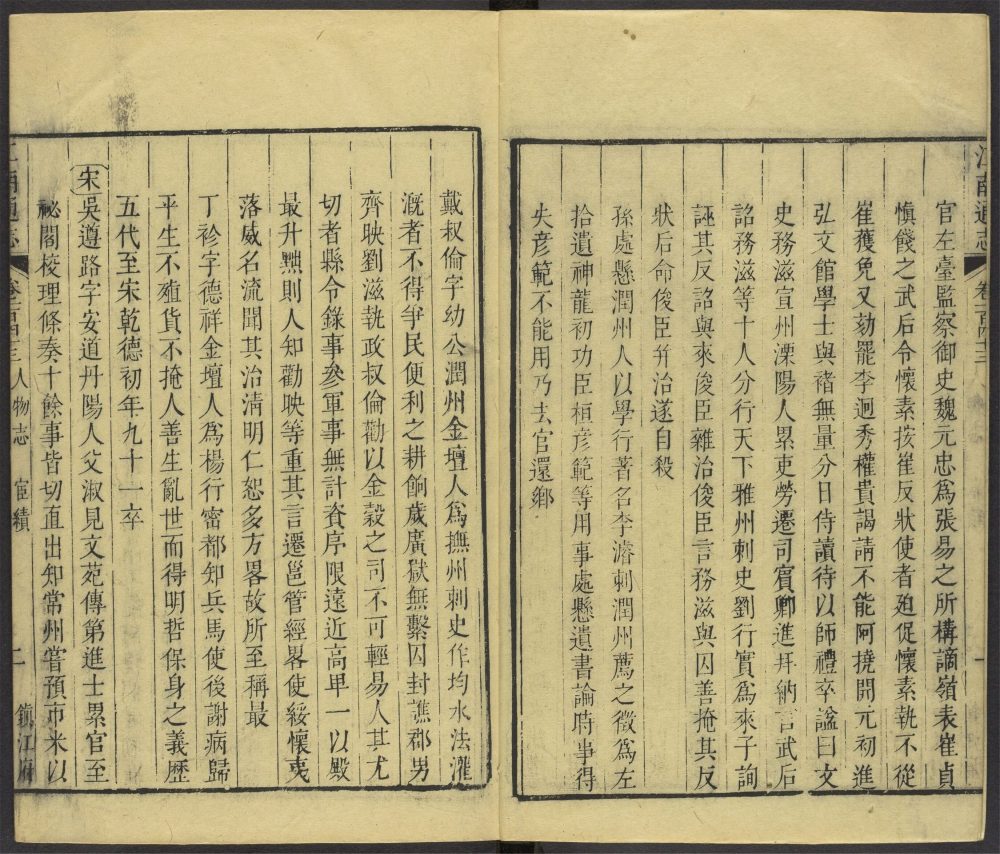 江南通志
卷一百四十三
一
官左臺監察御史魏元忠爲張易之所構謫嶺表崔貞
愼餞之武后令懷素按崔反狀使者廹促懷素執不從
崔獲免又劾罷李迥秀權貴謁請不能阿撓開元初進
弘文館學士與褚無量分日侍讀待以師禮卒諡曰文
史務滋宣州溧陽人累吏勞遷司賓卿進拜納言武后
詔務滋等十人分行天下雅州刺史劉行實爲來子詢
誣其反詔與來俊臣雜治俊臣言務滋與囚善掩其反
狀后命俊臣幷治遂自殺
孫處懸潤州人以學行著名李濬刺潤州薦之徵爲左
拾遺神龍初功臣桓彦範等用事處懸遺書論時事得
失彦範不能用乃去官還鄉
戴叔倫字幼公潤州金壇人爲撫州刺史作均水法灌
溉者不得爭民便利之耕餉歲廣獄無繫囚封譙郡男
齊映劉滋執政叔倫勸以金榖之司不可輕易人其尤
切者縣令錄事參軍事無計資序限遠近高甲一以殿
最升黜則人知勸映等重其言遷邕管經畧使綏懷夷
落威名流聞其治淸明仁恕多方畧故所至稱最
丁袗字德祥金壇人爲楊行密都知兵馬使後謝病歸
平生不殖貨不掩人善生亂世而得明哲保身之義歷
五代至宋乾德初年九十一卒
宋吳遵路字安道丹陽人父淑見文苑傳第進士累官至
祕閣校理條奏十餘事皆切直出知常州嘗預市米以
江南通志
卷一百四十三
人物志
宦績
二
鎮江府